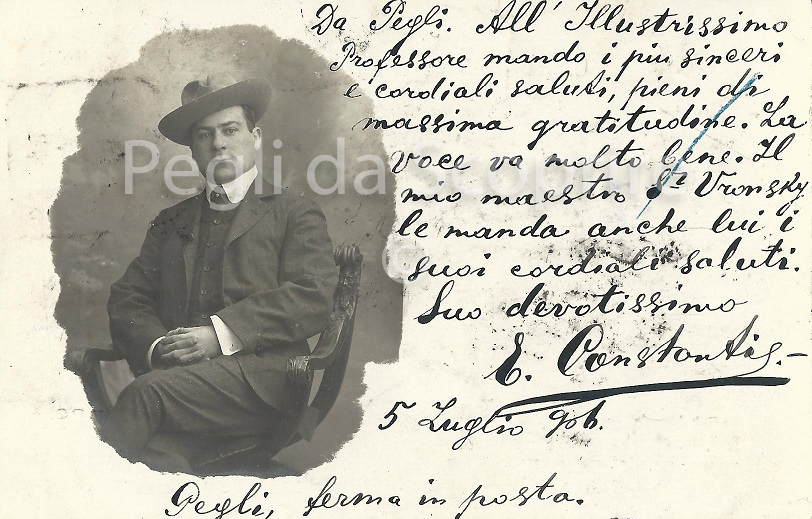 Da Pegli. All' Illustrissimo
Professore mando i piu sinceri
e cordiali saluti, pieni di
massima gratitudine. La
voce va molto bene. Il
mio maestro Sr Vronsky
le manda anche lui i
suoi cordiali saluti.
Suo devotissimo
E. Constantis.-
5 Luglio 906.
Pegli, ferma in posta.
Pegli da Scoprire